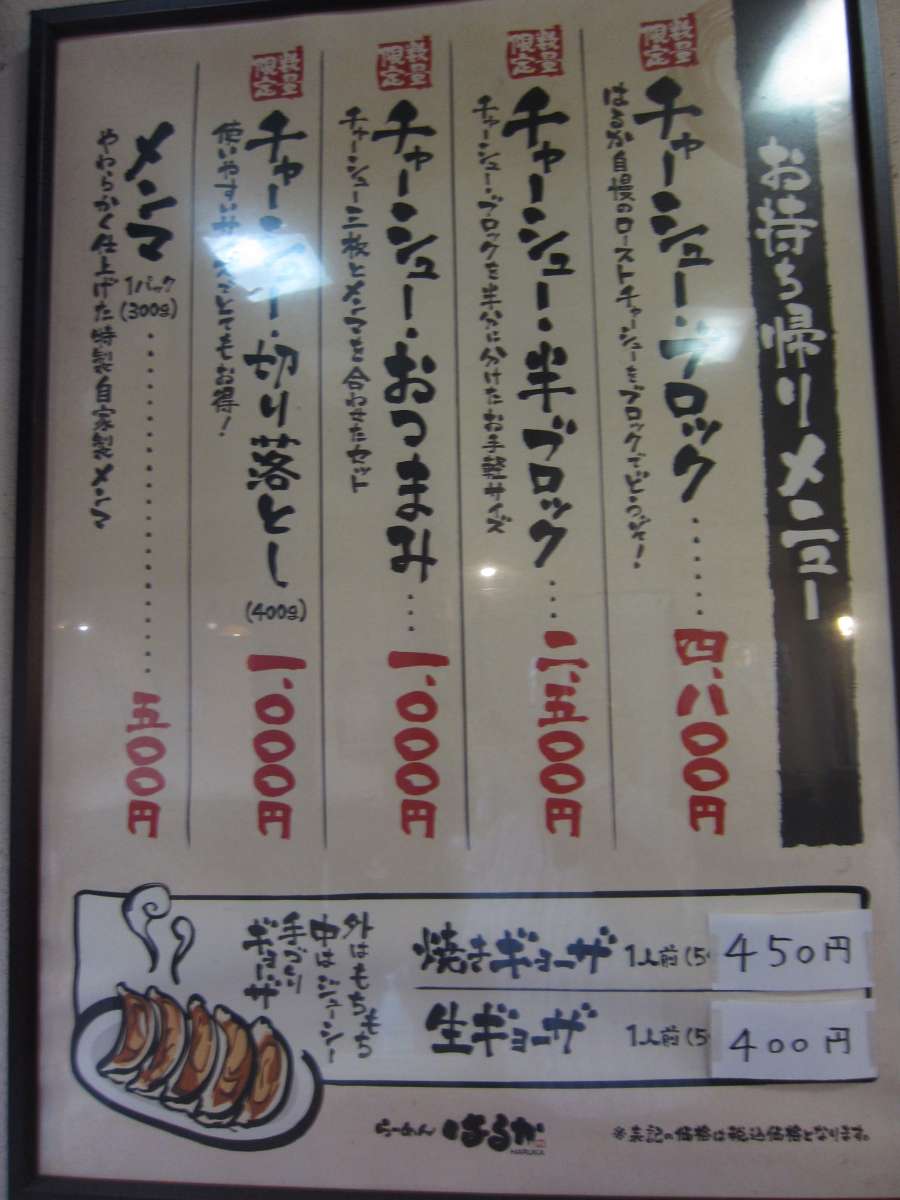 お持ち帰りメニュー
数量限定
チャーシュー・ブロック……四、八〇〇円
はるか自慢のローストチャーシューをブロックでどうぞ!
数量限定
チャーシュー・半ブロック…二、五〇〇円
チャーシュー・ブロックを半分に分けたお手軽サイズ
数量限定
チャーシュー・おつまみ…一、〇〇〇円
チャーシュー三枚とメンマを合わせたセット
数量限定
チャーシュー・切り落とし(400g)一、〇〇〇円
使いやすいサイズでとてもお得!
メンマ1パック(300g)………………五〇〇円
やわらかく仕上げた特製自家製メンマ
焼きギョーザ 1人前(5 450円
生ギョーザ 1人前(5 400円
外はもちもち
中はジューシー
手づくり
ギョーザ
らーめん はるか
HARUKA
※表記の価格は税込価格となります。